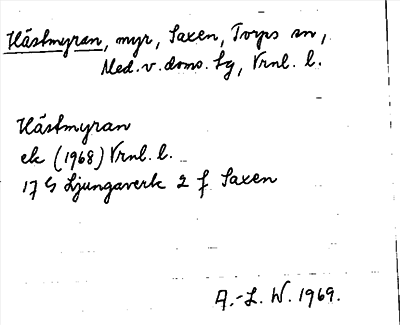 Hästmyran, myr, Saxen, Torps sn,
Med. v. doms. tg, Vrnl. l.
Hästmyran
ek (1968) Vrnl. l.
17 G Ljungaverk 2 f Saxen
A.-L. W. 1969.